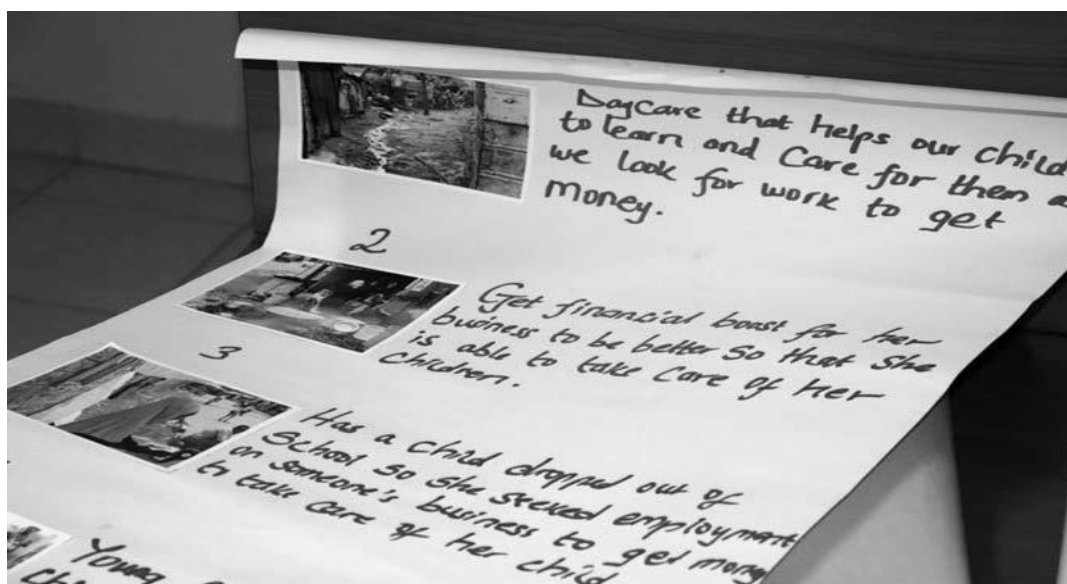 DayCare that helps our child
to learn and Care for them a
we look for work to get
money.
2
Get financial boost for her
business to be better So that She
is able to take Care of her
Children.
3
Has a child dropped out of
School so she seeked employment
on someone's business to get money
to take care of her child
Young